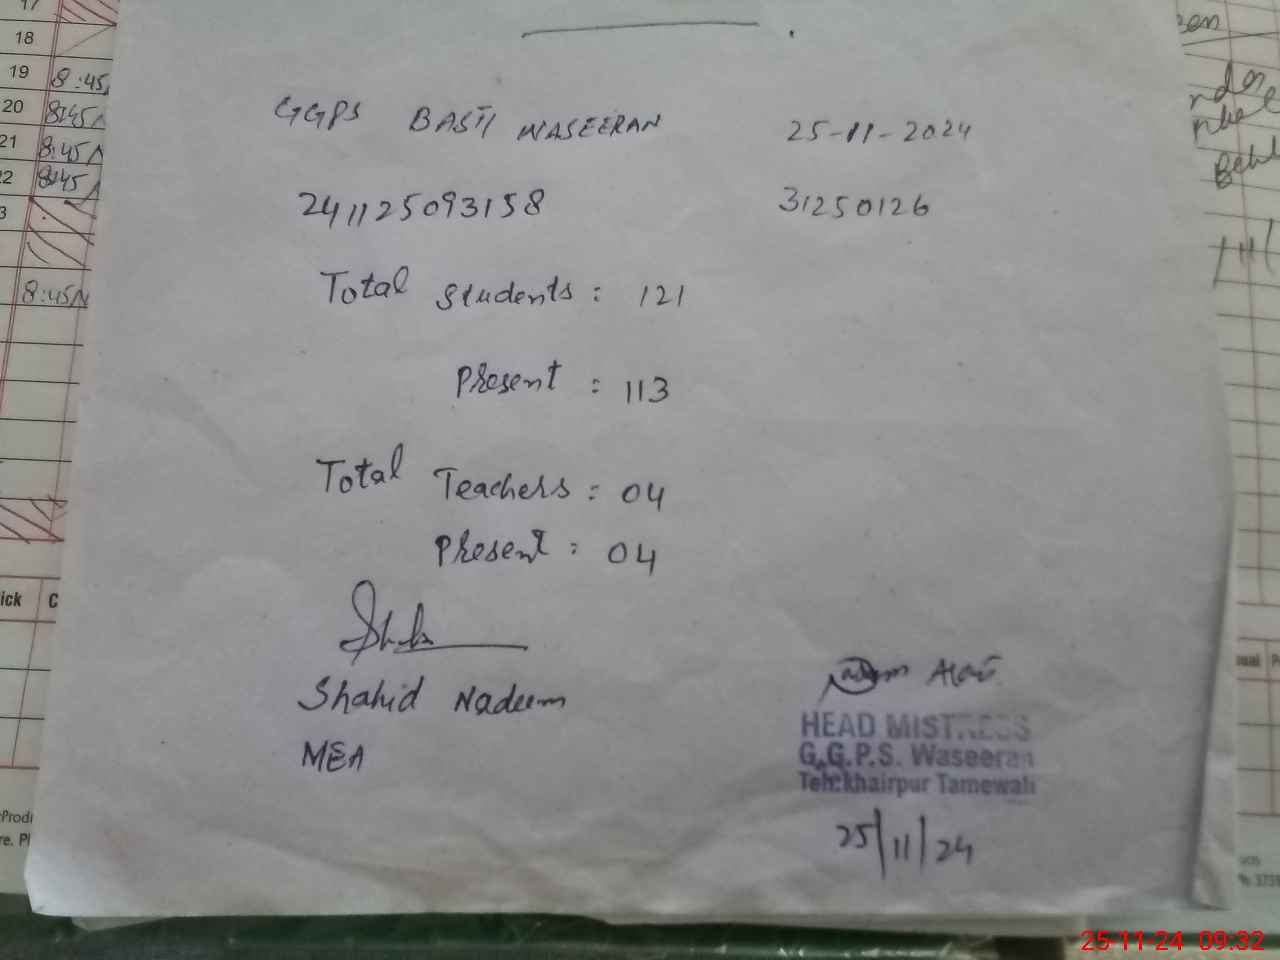 17
18
19 8:45A
20 8:45A
21 8:45A
22 8:45A
3
8:45A
ick C
Prodi
re. Pl
GGPS BASTI WASEERAN 25-11-2024
241125093158 31250126
Total Students : 121
Present : 113
Total Teachers : 04
Present : 04
Shahid Nadeem
MEA
HEAD MISTRESS
G.G.P.S. Waseeran
Teh: khairpur Tamewali
25/11/24
25-11-24 09:32